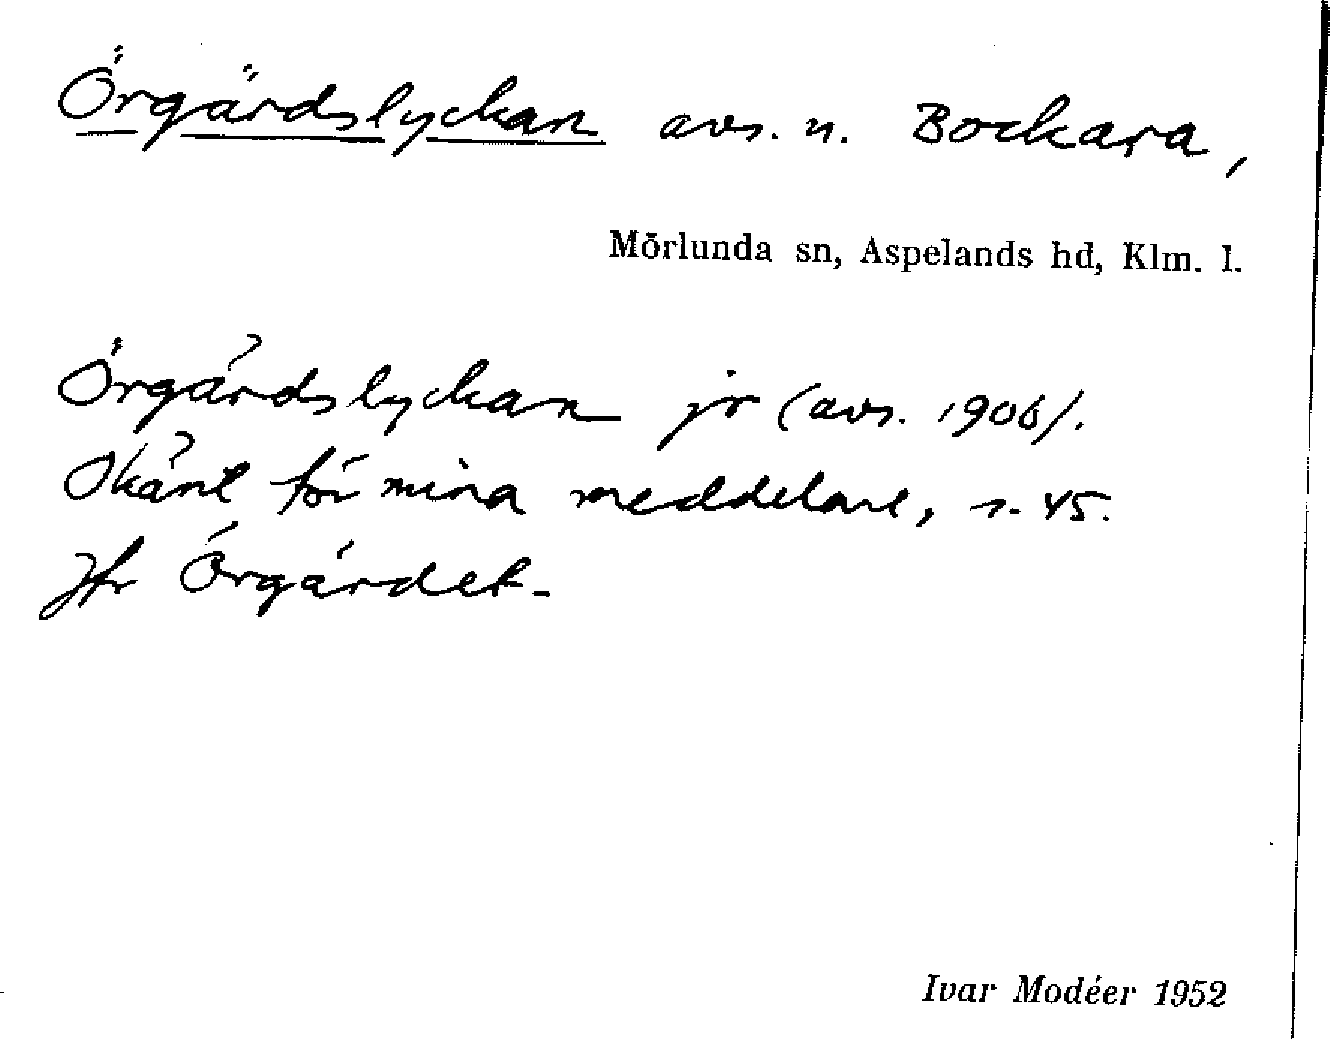 Örgärdslyckan avs. n. Bockara,
Mörlunda sn, Aspelands hd, Klm. l.
Örgärdslyckan jr (avs. 1906).
Okänt för mina meddelare, s. 45.
Jfr Örgärdet.
Ivar Modéer 1952